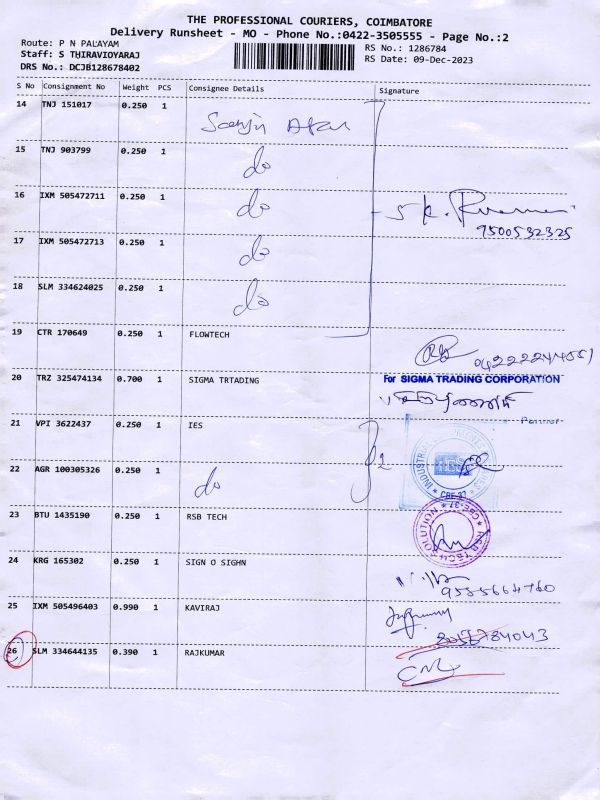 THE PROFESSIONAL COURIERS, COIMBATORE
Delivery Runsheet - MO - Phone No.:0422-3505555 - Page No.:2
Route: P N PALAYAM
Staff: S THIRAVIOYARAJ
DRS No.: DCJB128678402
RS No.: 1286784
RS Date: 09-Dec-2023
S No Consignment No Weight PCS Consignee Details Signature
14 TNJ 151017 0.250 1
15 TNJ 903799 0.250 1 do
16 IXM 505472711 0.250 1 do
9500532325
17 IXM 505472713 0.250 1 do
18 SLM 334624025 0.250 1 do
19 CTR 170649 0.250 1 FLOWTECH
20 TRZ 325474134 0.700 1 SIGMA TRTADING
For SIGMA TRADING CORPORATION
21 VPI 3622437 0.250 1 IES
Partner
22 AGR 100305326 0.250 1 do
2
IES
CBE-37
23 BTU 1435190 0.250 1 RSB TECH
RSB TECH SOLUTION * CBE-37 *
24 KRG 165302 0.250 1 SIGN O SIGHN
9585664760
25 IXM 505496403 0.990 1 KAVIRAJ
26 SLM 334644135 0.390 1 RAJKUMAR